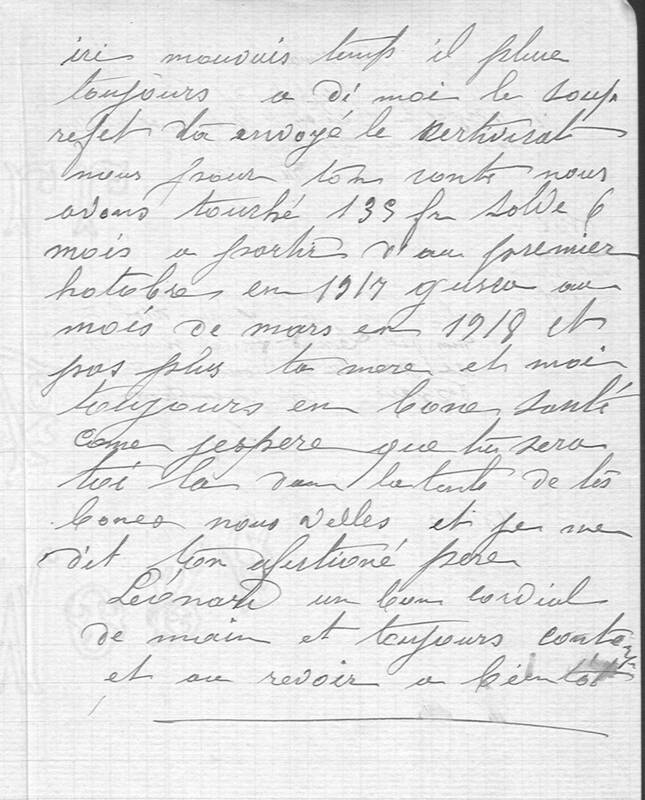 isi mauvais temps il pluie
toujours a di moi le soup
refet ta envoyé le sertivicat
nous pour ton conte nous
avons touché 139 fr solde 6
mois a partir d'au premier
hotobre en 1917 gusca au
mois de mars en 1918 et
pas plus ta mere et moi
toujours en bone santé
come jespere que tu sera
toi la dan latente de tes
bones nous velles et je me
dit ton afectioné pere
Léonard un bon cordial
de main et toujours conten
et au revoir a bientot